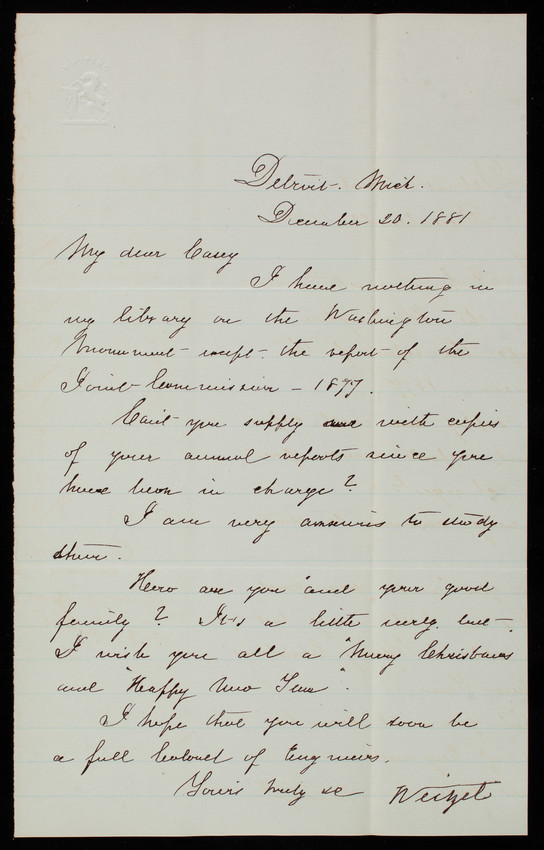 Detroit. Mich.
December 20. 1881
My dear Casey
I have nothing in
my library on the Washington
Monument except the report of the
Joint Commission - 1877.
Can't you supply me with copies
of your annual reports since you
have been in charge?
I am very anxious to study
them.
How are you and your good
family? It is a little early but
I wish you all a "Merry Christmas
and "Happy New Year".
I hope that you will soon be
a full Colonel of Engineers.
Yours truly &c Weitzel